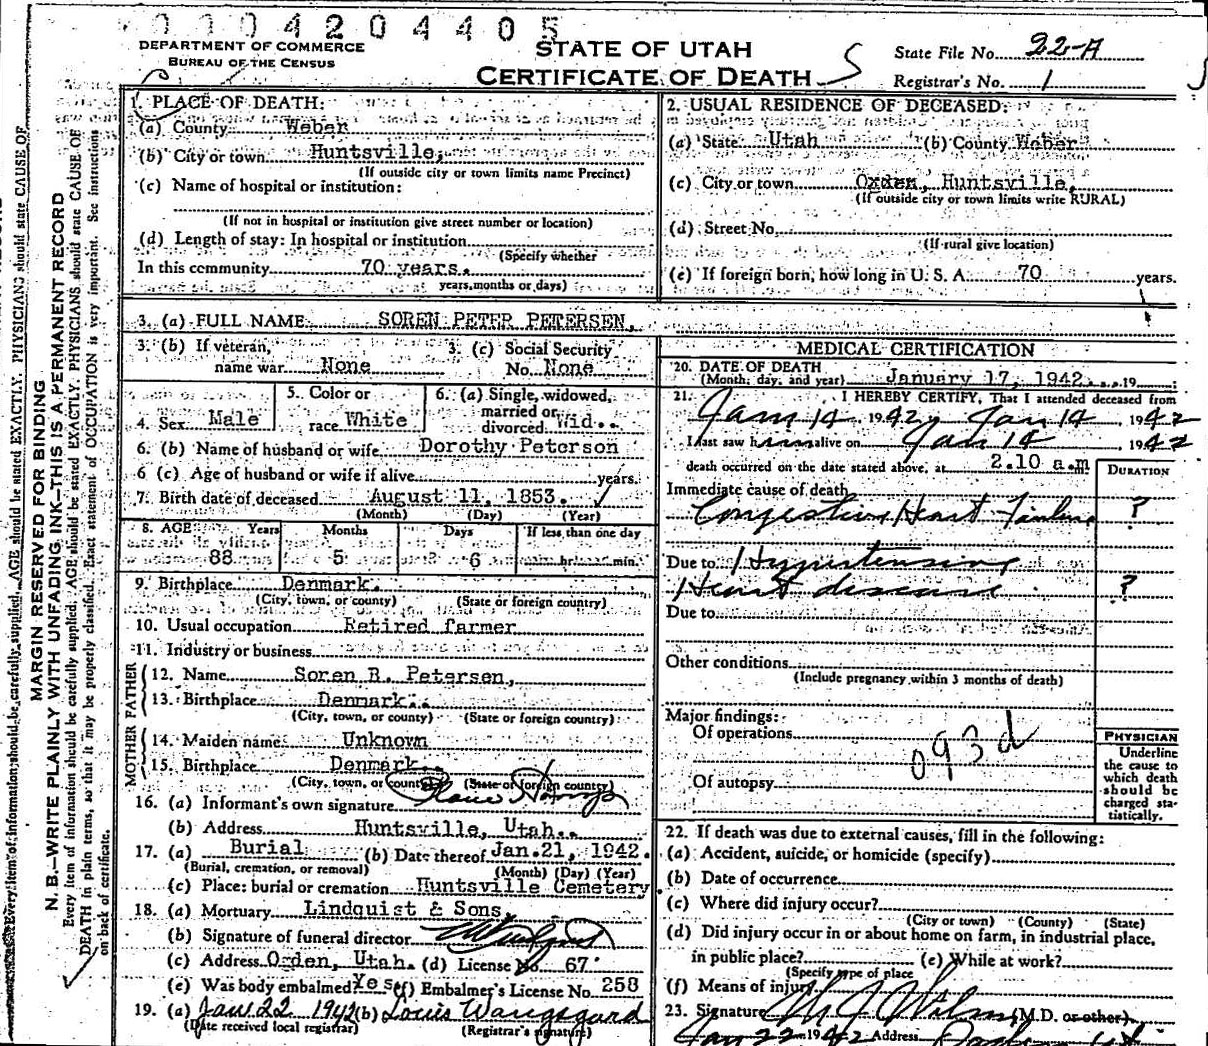 0004204405
DEPARTMENT OF COMMERCE
BUREAU OF THE CENSUS
STATE OF UTAH
CERTIFICATE OF DEATH
S
State File No. 22-A
Registrar's No. 1
MARGIN RESERVED FOR BINDING
N. B.—WRITE PLAINLY WITH UNFADING INK—THIS IS A PERMANENT RECORD
Every item of information should be carefully supplied. AGE should be stated EXACTLY. PHYSICIANS should state CAUSE OF
DEATH in plain terms, so that it may be properly classified. Exact statement of OCCUPATION is very important. See instructions
on back of certificate.
1. PLACE OF DEATH:
(a) County Weber
(b) City or town Huntsville,
(If outside city or town limits name Precinct)
(c) Name of hospital or institution:
(If not in hospital or institution give street number or location)
(d) Length of stay: In hospital or institution
(Specify whether
In this community 70 years.
years, months or days)
2. USUAL RESIDENCE OF DECEASED:
(a) State Utah (b) County Weber
(c) City or town Huntsville,
(If outside city or town limits write RURAL)
(d) Street No.
(If rural give location)
(e) If foreign born, how long in U. S. A. 70 years.
3. (a) FULL NAME SOREN PETER PETERSEN,
3. (b) If veteran,
name war None
3. (c) Social Security
No. None
4. Sex Male
5. Color or
race White
6. (a) Single, widowed,
married or
divorced Wid..
6. (b) Name of husband or wife Dorothy Peterson
6 (c) Age of husband or wife if alive years.
7. Birth date of deceased August 11, 1853.
(Month) (Day) (Year)
8. AGE Years Months Days If less than one day
88 5 6 hr. min.
9. Birthplace Denmark.
(City, town, or county) (State or foreign country)
10. Usual occupation Retired farmer
11. Industry or business
FATHER
12. Name Soren B. Petersen,
13. Birthplace Denmark..
(City, town, or county) (State or foreign country)
MOTHER
14. Maiden name Unknown
15. Birthplace Denmark..
(City, town, or county) (State or foreign country)
16. (a) Informant's own signature
(b) Address Huntsville, Utah..
17. (a) Burial (b) Date thereof Jan. 21, 1942.
(Burial, cremation, or removal) (Month) (Day) (Year)
(c) Place: burial or cremation Huntsville Cemetery
18. (a) Mortuary Lindquist & Sons,
(b) Signature of funeral director
(c) Address Orden, Utah. (d) License No. 67
(e) Was body embalmed Yes (f) Embalmer's License No. 258
19. (a) Jan 22 1942 (b) Louis Wangsgard
(Date received local registrar) (Registrar's signature)
MEDICAL CERTIFICATION
20. DATE OF DEATH
(Month, day, and year) January 17, 1942. 19
21. I HEREBY CERTIFY, That I attended deceased from
Jan 14, 1942, Jan 14, 1942
I last saw him alive on Jan 14 1942
death occurred on the date stated above, at 2.10 a.m
DURATION
Immediate cause of death
Congestive Heart Failure ?
Due to Hypertensive
Heart disease ?
Due to
Other conditions
(Include pregnancy within 3 months of death)
Major findings:
Of operations
093d
Of autopsy
PHYSICIAN
Underline
the cause to
which death
should be
charged sta-
tistically.
22. If death was due to external causes, fill in the following:
(a) Accident, suicide, or homicide (specify)
(b) Date of occurrence
(c) Where did injury occur?
(City or town) (County) (State)
(d) Did injury occur in or about home on farm, in industrial place,
in public place? (e) While at work?
(Specify type of place
(f) Means of injury
23. Signature (M.D. or other)
Jan 22 1942 Address